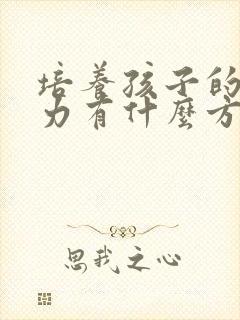 培養孩子的
力有什麼方
思我之心